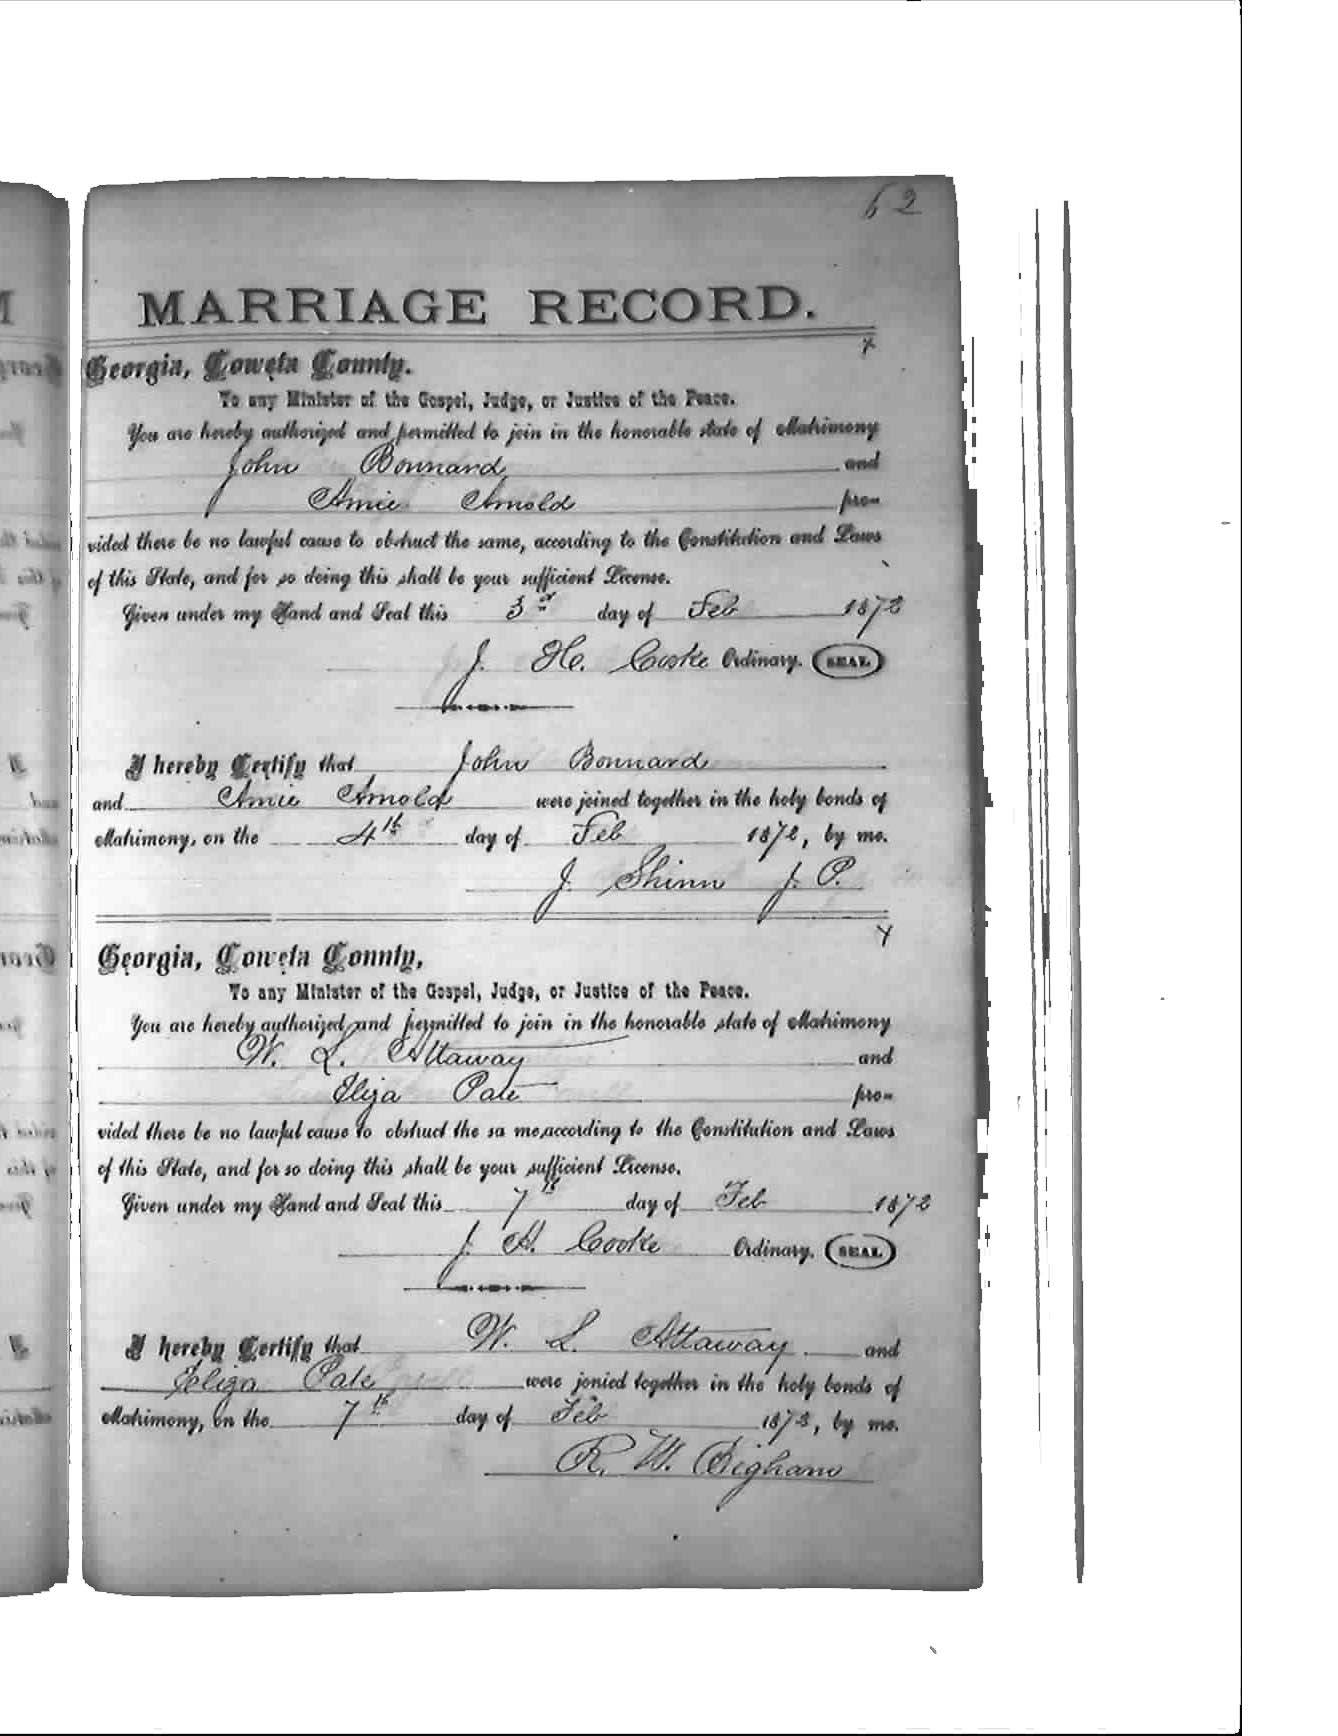 62
MARRIAGE RECORD.
x
Georgia, Coweta County.
To any Minister of the Gospel, Judge, or Justice of the Peace.
You are hereby authorized and permitted to join in the honorable state of Matrimony
John Bonnard and
Amie Arnold pro-
vided there be no lawful cause to obstruct the same, according to the Constitution and Laws
of this State, and for so doing this shall be your sufficient License.
Given under my Hand and Seal this 3rd day of Feb 1872
J. H. Cooke Ordinary. SEAL
I hereby Certify that John Bonnard
and Amie Arnold were joined together in the holy bonds of
Matrimony, on the 4th day of Feb 1872, by me.
J. Shinn J. P.
x
Georgia, Coweta County,
To any Minister of the Gospel, Judge, or Justice of the Peace.
You are hereby authorized and permitted to join in the honorable state of Matrimony
W. L. Attaway and
Eliza Pate pro-
vided there be no lawful cause to obstruct the sa me,according to the Constitution and Laws
of this State, and for so doing this shall be your sufficient License.
Given under my Hand and Seal this 7th day of Feb 1872
J. H. Cooke Ordinary. SEAL
I hereby Certify that W. L. Attaway and
Eliza Pate were jonied together in the holy bonds of
Matrimony, on the 7th day of Feb 1872, by me.
R. W. Bigham